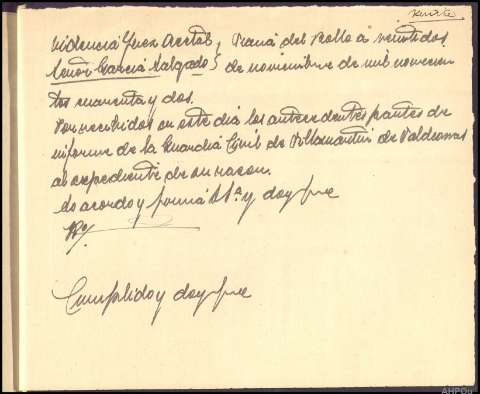 Providencia Juez Acctal. } Puebla del Brollón a veintidos
Señor García Salgado } de noviembre de mil novecien
tos cuarenta y dos.
Por recibidos en este día los antecedentes partes de
informe de la Guardia Civil de Villamartín de Valdeorras
al expediente de su razon.
Lo acordó y firma S.Sª. y doy fe
Cumplido y doy fe
AHPOu